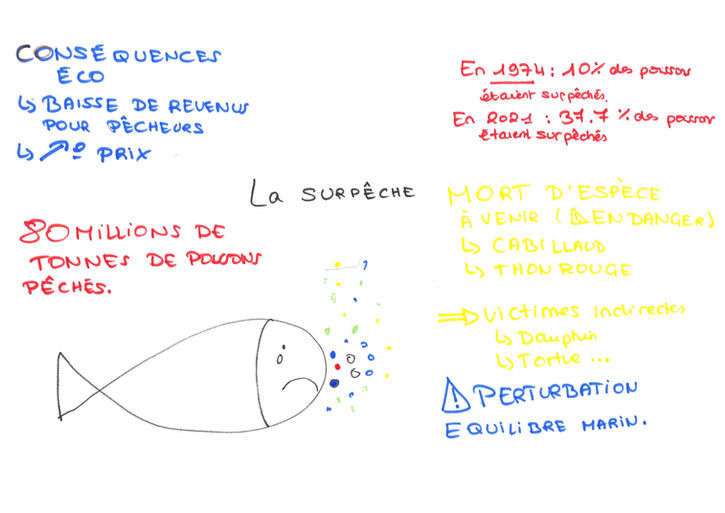 CONSÉQUENCES
ÉCO
↳ BAISSE DE REVENUS
POUR PÊCHEURS
↳ ↗º PRIX
En 1974 : 10% des poissons
étaient surpêchés.
En 2021 : 37.7 % des poissons
étaient surpêchés
La SURPÊCHE
80 MILLIONS DE
TONNES DE POISSONS
PÊCHÉS.
MORT D'ESPÈCE
À VENIR (⚠ EN DANGER)
↳ CABILLAUD
↳ THON ROUGE
⇒ Victimes indirectes
↳ Dauphin
↳ Tortue ...
⚠ PERTURBATION
EQUILIBRE MARIN.